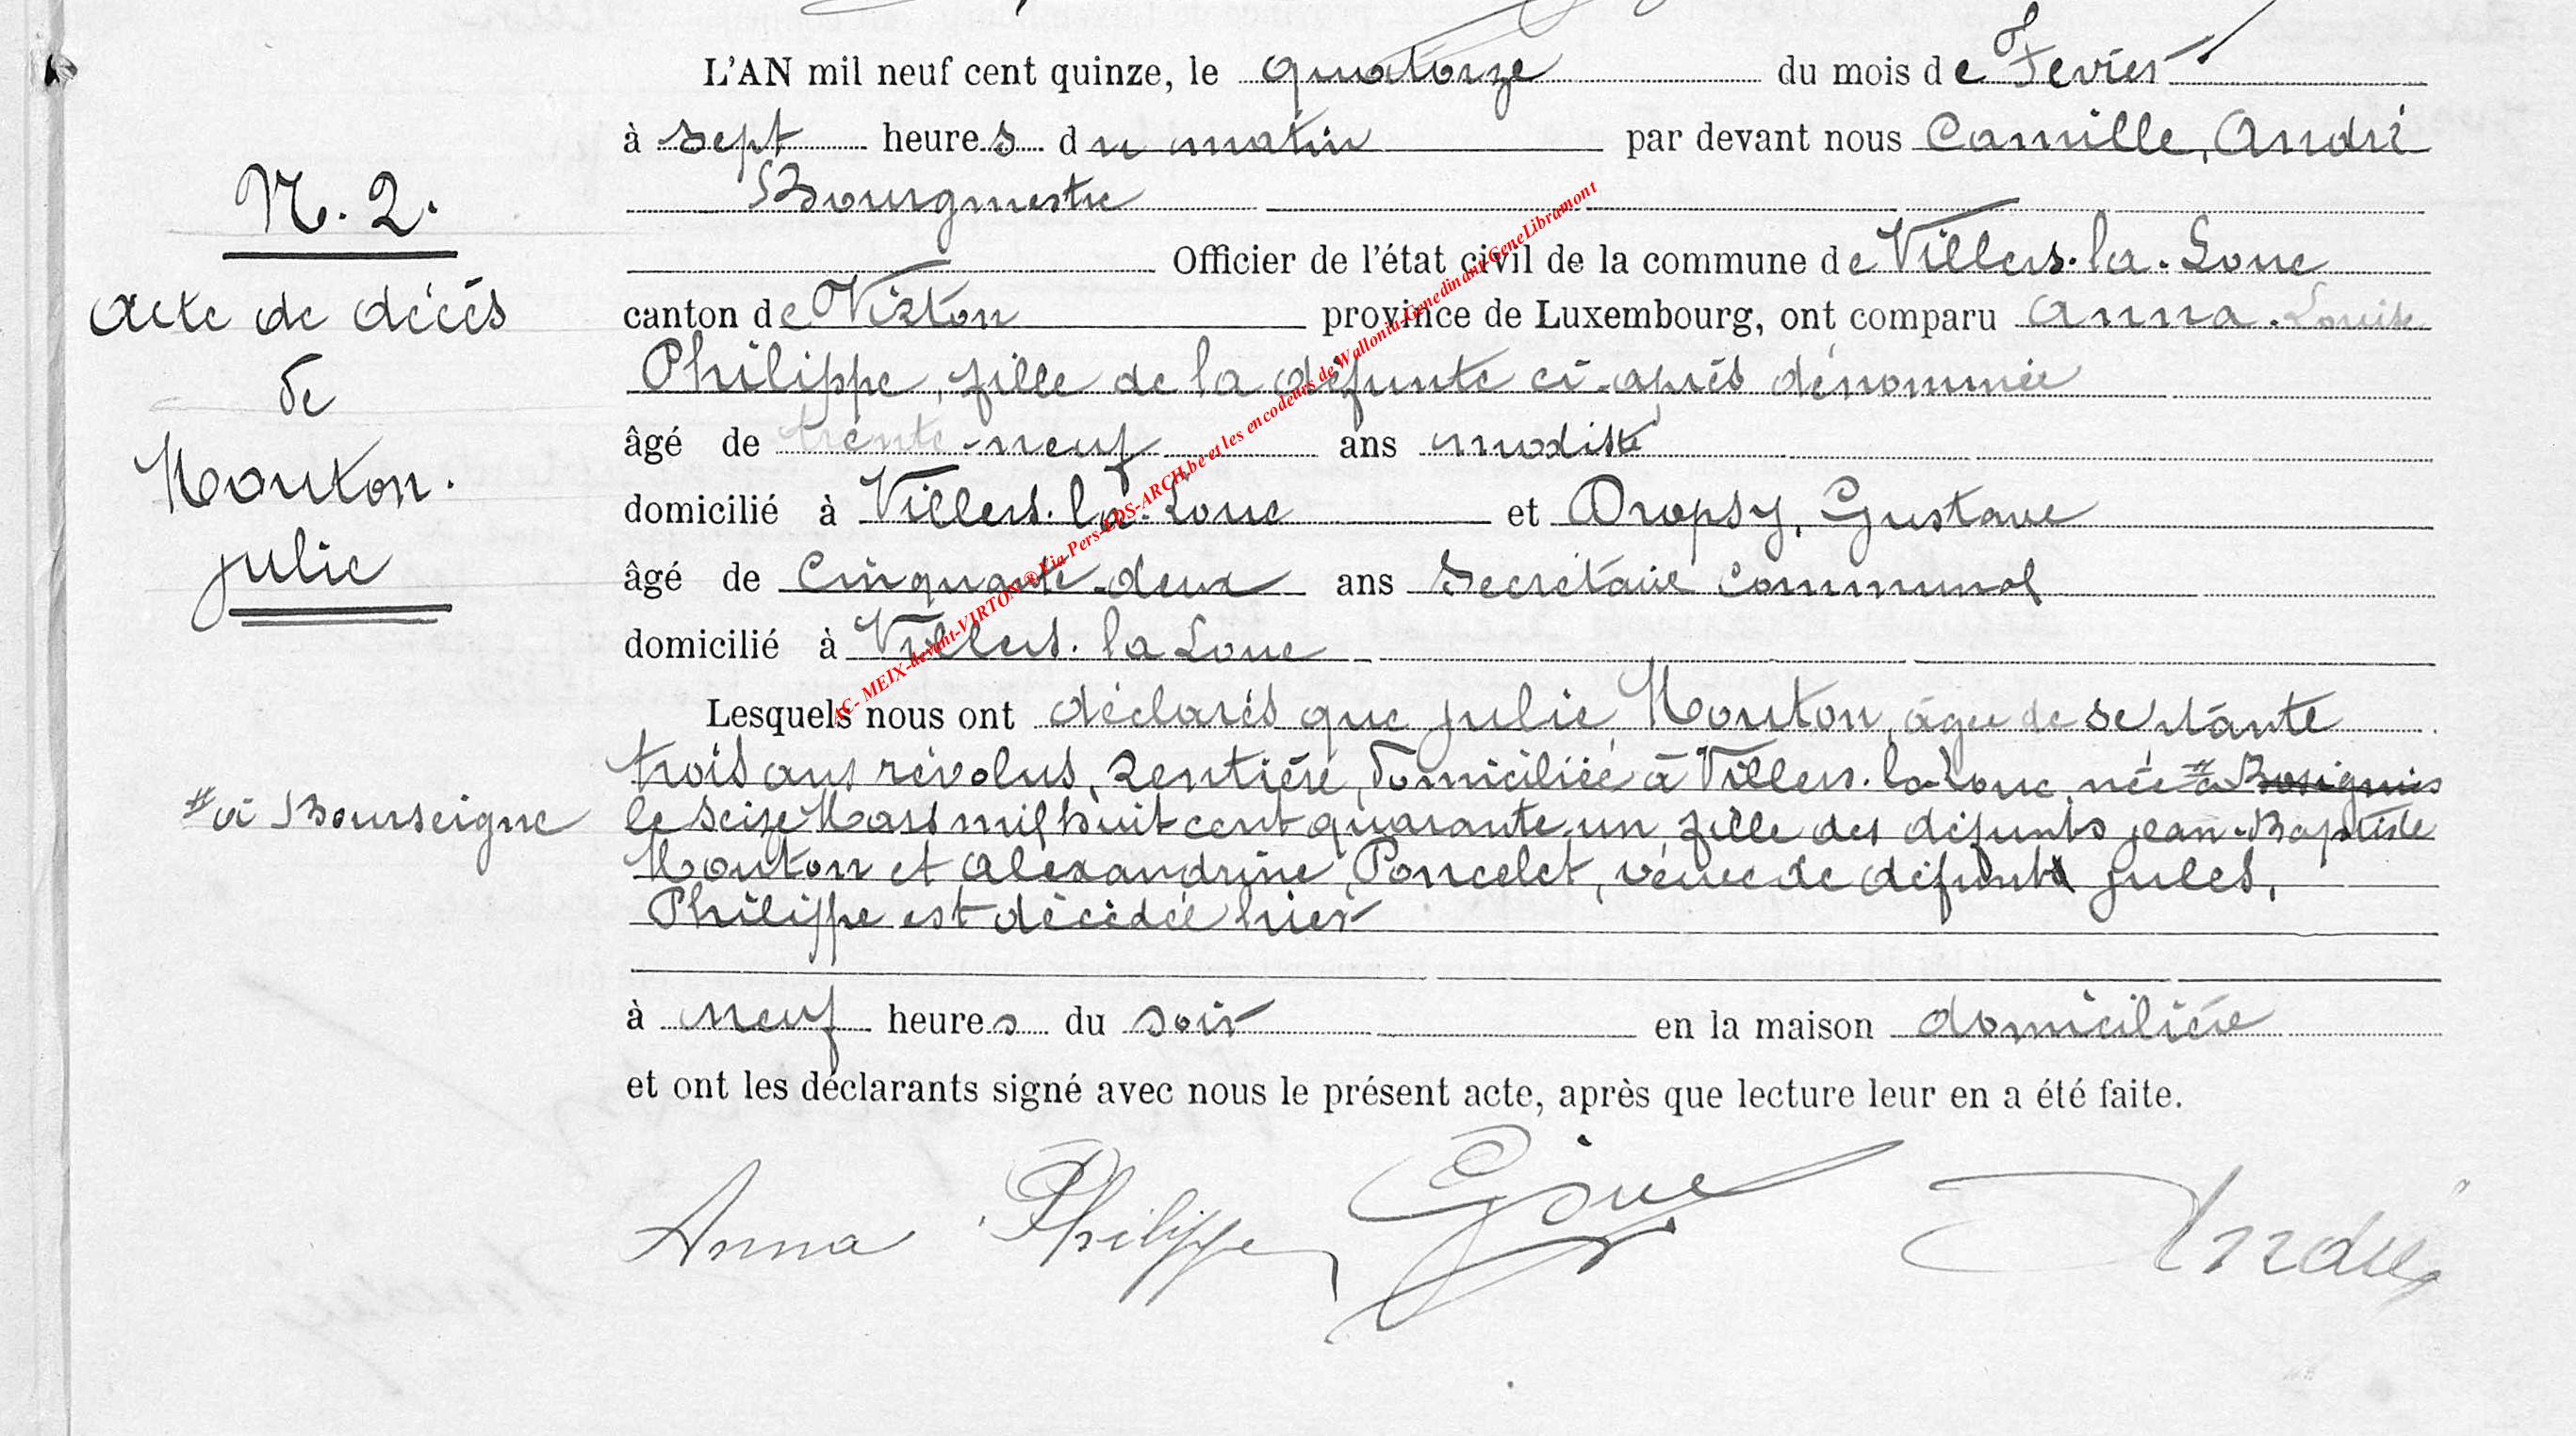 L'AN mil neuf cent quinze, le quatorze du mois de Fevrier
à sept heures du matin par devant nous Camille, André
Bourgmestre
Officier de l'état civil de la commune de Villers-la-Loue
canton de Virton province de Luxembourg, ont comparu Anna-Louise
Philippe, fille de la défunte ci-après dénommée
âgé de trente-neuf ans modiste
domicilié à Villers-la-Loue et Dropsy, Gustave
âgé de cinquante-deux ans secrétaire communal
domicilié à Villers-la Loue
Lesquels nous ont déclarés que Julie Mouton, âgée de septante
trois ans révolus, rentière, domiciliée à Villers-la-Loue, née #
le seize Mars mil huit cent quarante-un, fille des défunts Jean-Baptiste
Mouton et Alexandrine Poncelet, veuve de défunt Jules,
Philippe est décédée hier
à neuf heures du soir en la maison domicilière
et ont les déclarants signé avec nous le présent acte, après que lecture leur en a été faite.
Anna Philippe André
N. 2.
Acte de décés
de
Mouton.
Julie
# à Bourseigne
AC- MEIX-devant-VIRTON ® Kia-Pers-LDS-ARCH.be et les encodeurs de Wallonia-Genedinant-GeneLibramont